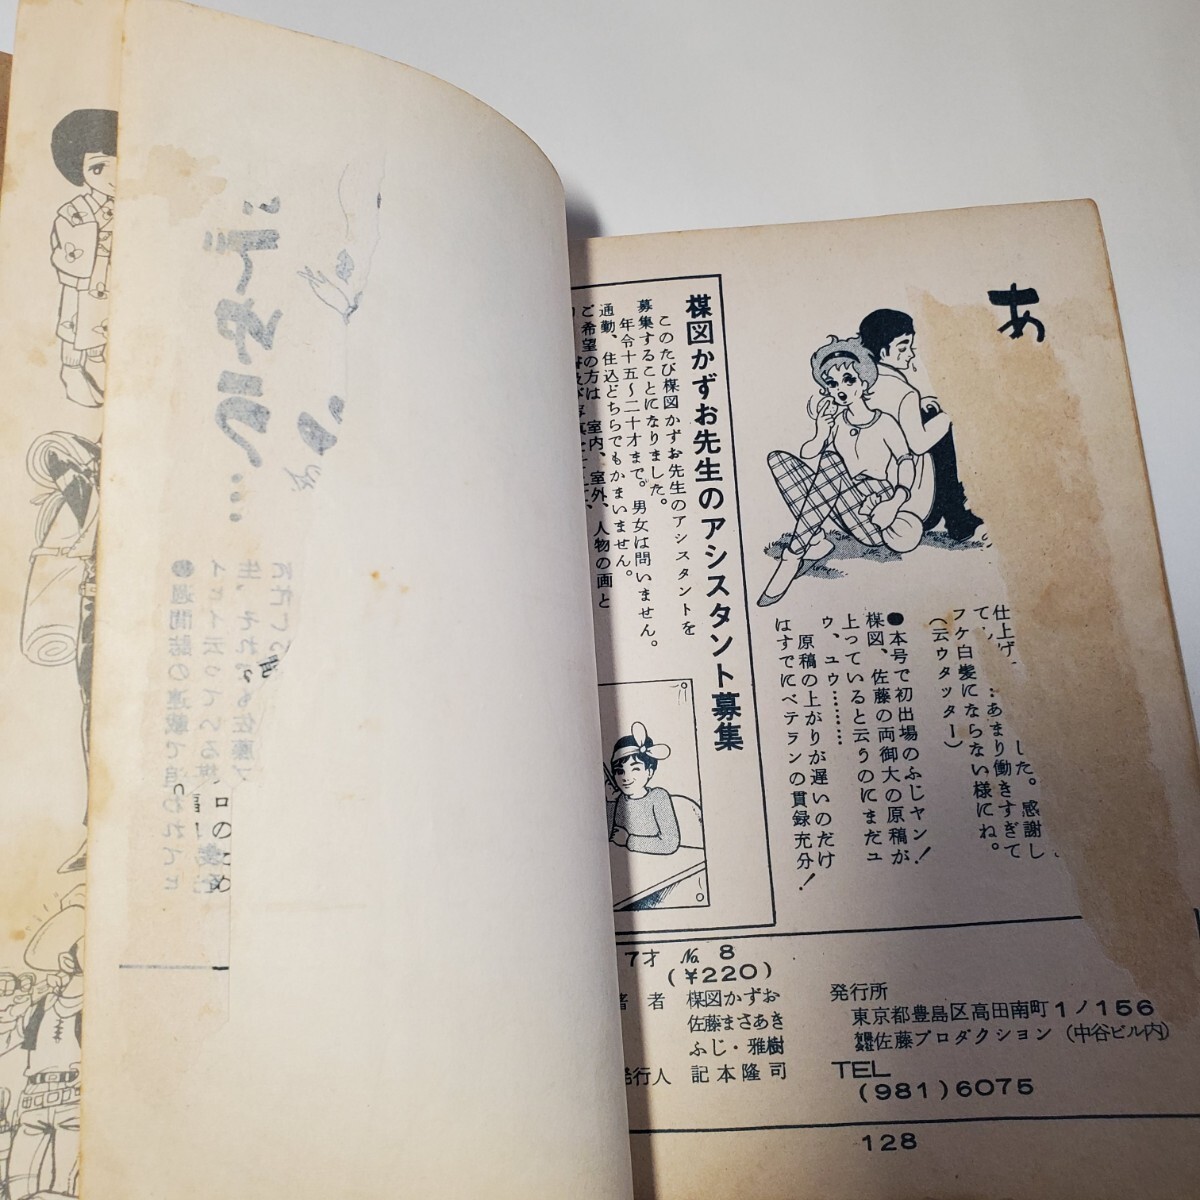 あ
仕上げ
した。感謝し
て
…あまり働きすぎて
フケ白髪にならない様にね。
(云ウタッター)
●本号で初出場のふじヤン!
楳図、佐藤の両御大の原稿が
上っていると云うのにまだユ
ウ、ユウ………
原稿の上がりが遅いのだけ
はすでにベテランの貫録充分!
楳図かずお先生のアシスタント募集
このたび楳図かずお先生のアシスタントを
募集することになりました。
年令十五～二十才まで。男女は問いません。
通勤、住込どちらでもかまいません。
ご希望の方は、室内、室外、人物の画と
7才 № 8
(¥220)
著者 楳図かずお
佐藤まさあき
ふじ・雅樹
発行人 記本隆司
発行所
東京都豊島区高田南町1ノ156
佐藤プロダクション (中谷ビル内)
TEL
(981)6075
128
●週間誌の連載で追われてヒ
イヒイ云っている
生、それでも佐藤プ
ロのため